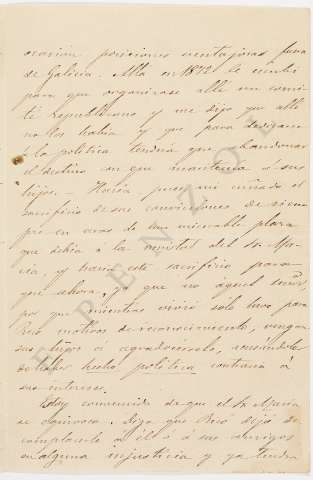 ocasión posiciones ventajosas fuera
de Galicia. Allá en 1872 le escribí
para que organizase allí un comi-
té republicano y me dijo que allí
no los había y que para dedicarse
á la política tendría que abandonar
el destino con que mantenía á sus
hijos. Hacía pues mi cuñado el
sacrificio de sus convicciones de siem-
pre en aras de una miserable plaza
que debía á la amistad del Sr. Ma-
cía, y hacía este sacrificio para
que ahora, ya que no aquel señor,
por que mientras vivió solo tuvo para
Rosó motivos de reconocimiento, vengan
sus hijos á agradecérselo, acusándole
de haber hecho política contraria á
sus intereses.
Estoy convencido de que el Sr. Macía
se equivoca. Diga que Rosó dejó de
complacerle á él ó á sus amigos
en alguna injusticia y ya tendrá
E PENZOL